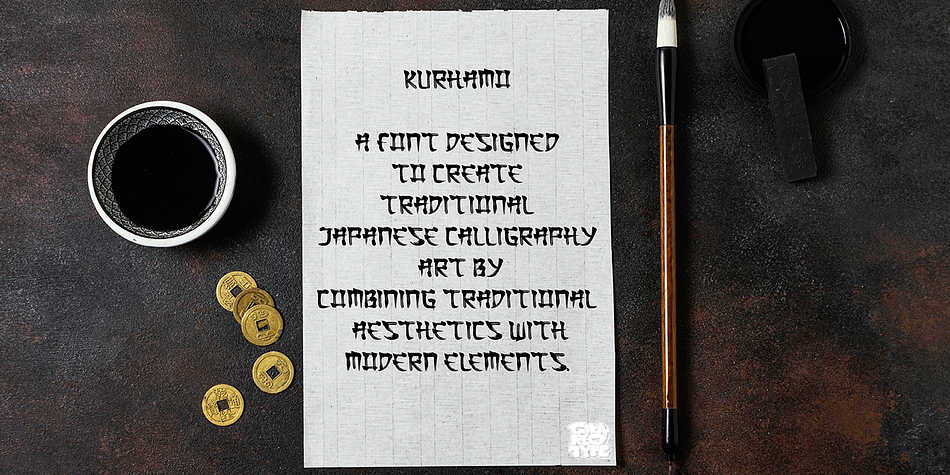 KURHAMO
A FONT DESIGNED
TO CREATE
TRADITIONAL
JAPANESE CALLIGRAPHY
ART BY
COMBINING TRADITIONAL
AESTHETICS WITH
MODERN ELEMENTS.